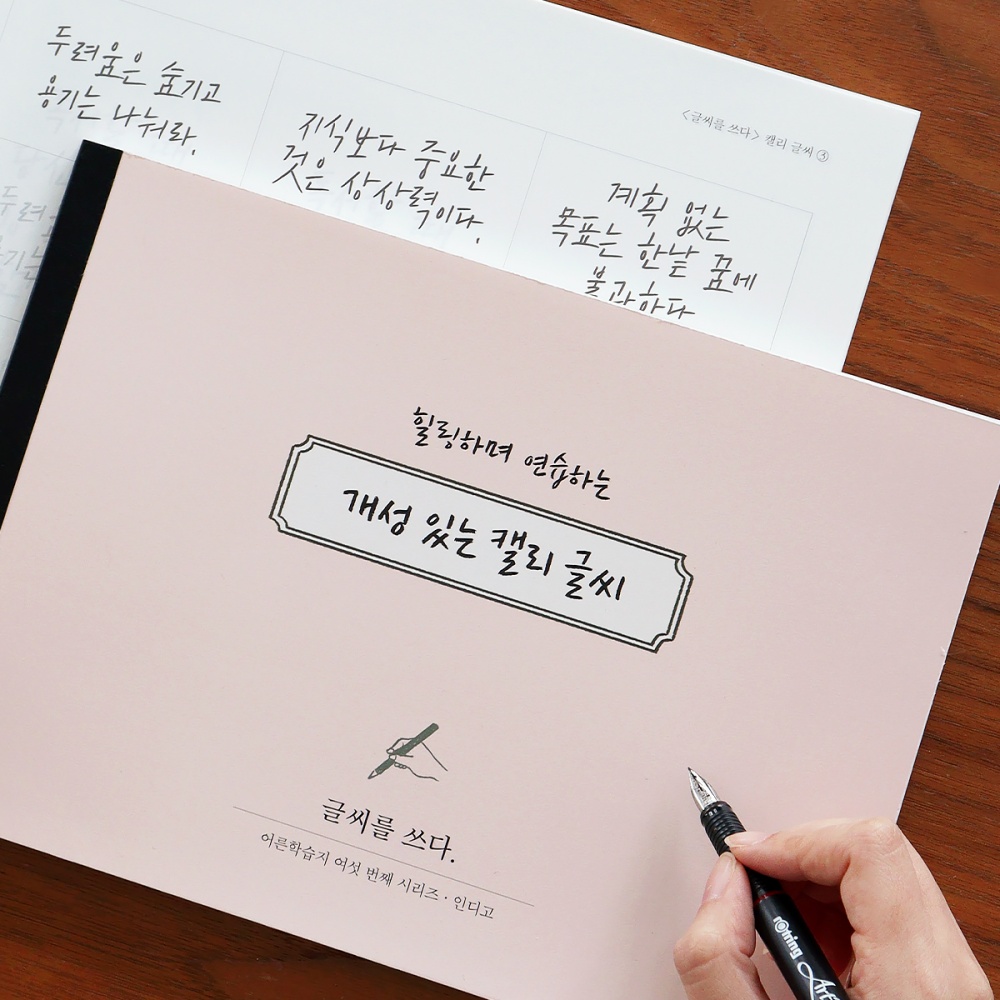 두려움은 숨기고
용기는 나눠라.
지식보다 중요한
것은 상상력이다.
<글씨를 쓰다> 캘리 글씨 ③
계획 없는
목표는 한낱 꿈에
불과하다
두려
기는
힐링하며 연습하는
개성 있는 캘리 글씨
글씨를 쓰다.
어른학습지 여섯 번째 시리즈 · 인디고
rotring